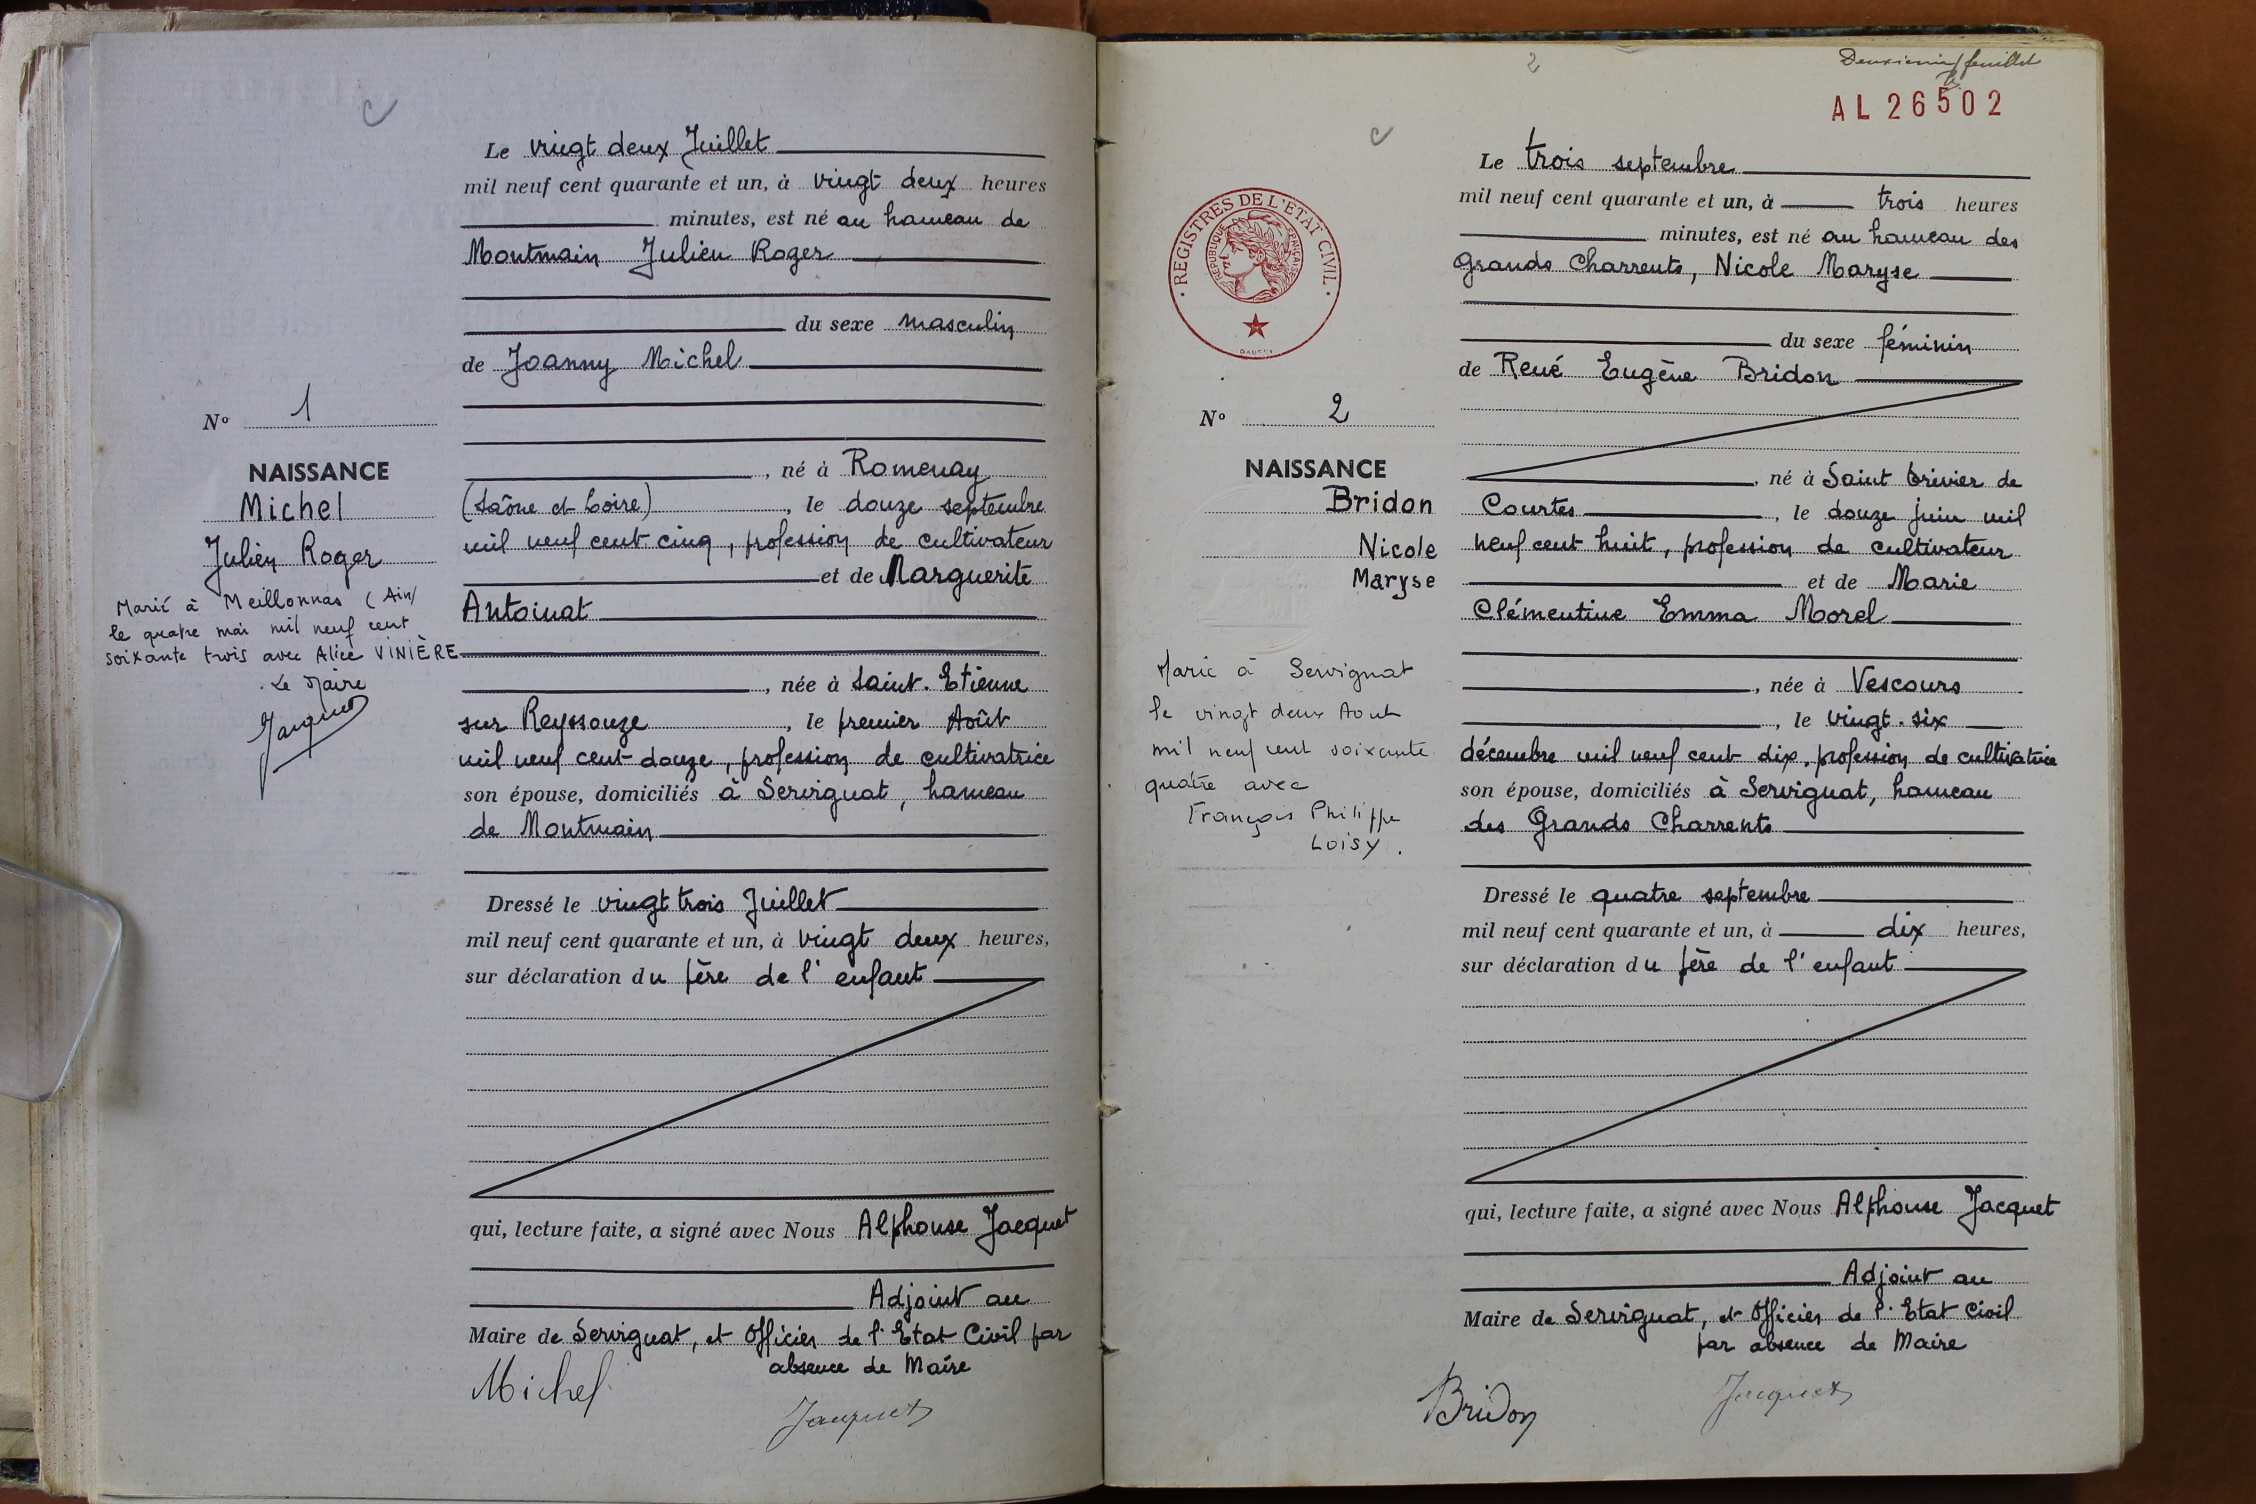 Le vingt deux Juillet
mil neuf cent quarante et un, à vingt deux heures
minutes, est né au hameau de
Montmain Julien Roger
du sexe masculin
de Joanny Michel
N° 1
NAISSANCE
Michel
Julien Roger
Marié à Meillonnas (Ain)
le quatre mai mil neuf cent
soixante trois avec Alice VINIÈRE
Le Maire
Jacquet
, né à Romenay
(Saône et Loire), le douze septembre
mil neuf cent cinq, profession de cultivateur
et de Marguerite
Antoinat
, née à Saint-Etienne
sur Reyssouze, le premier Août
mil neuf cent douze, profession de cultivatrice
son épouse, domiciliés à Servignat, hameau
de Montmain
Dressé le vingt trois Juillet
mil neuf cent quarante et un, à vingt deux heures,
sur déclaration du père de l'enfant
qui, lecture faite, a signé avec Nous Alphonse Jacquet
Adjoint au
Maire de Servignat, et Officier de l'Etat Civil par
absence de Maire
Michel
Jacquet
2
Deuxième feuillet
AL 26502
Le trois septembre
mil neuf cent quarante et un, à trois heures
minutes, est né au hameau des
Grands Charrents, Nicole Maryse
du sexe féminin
de René Eugène Bridon
REGISTRES DE L'ETAT CIVIL
REPUBLIQUE FRANÇAISE
N° 2
NAISSANCE
Bridon
Nicole
Maryse
Marié à Servignat
le vingt deux Aout
mil neuf cent soixante
quatre avec
François Philippe
LOISY.
, né à Saint Trivier de
Courtes, le douze juin mil
neuf cent huit, profession de cultivateur
et de Marie
Clémentine Emma Morel
, née à Vescours
, le vingt-six
décembre mil neuf cent dix, profession de cultivatrice
son épouse, domiciliés à Servignat, hameau
des Grands Charrents
Dressé le quatre septembre
mil neuf cent quarante et un, à dix heures,
sur déclaration du père de l'enfant
qui, lecture faite, a signé avec Nous Alphonse Jacquet
Adjoint au
Maire de Servignat, et Officier de l'Etat Civil
par absence de Maire
Bridon
Jacquet